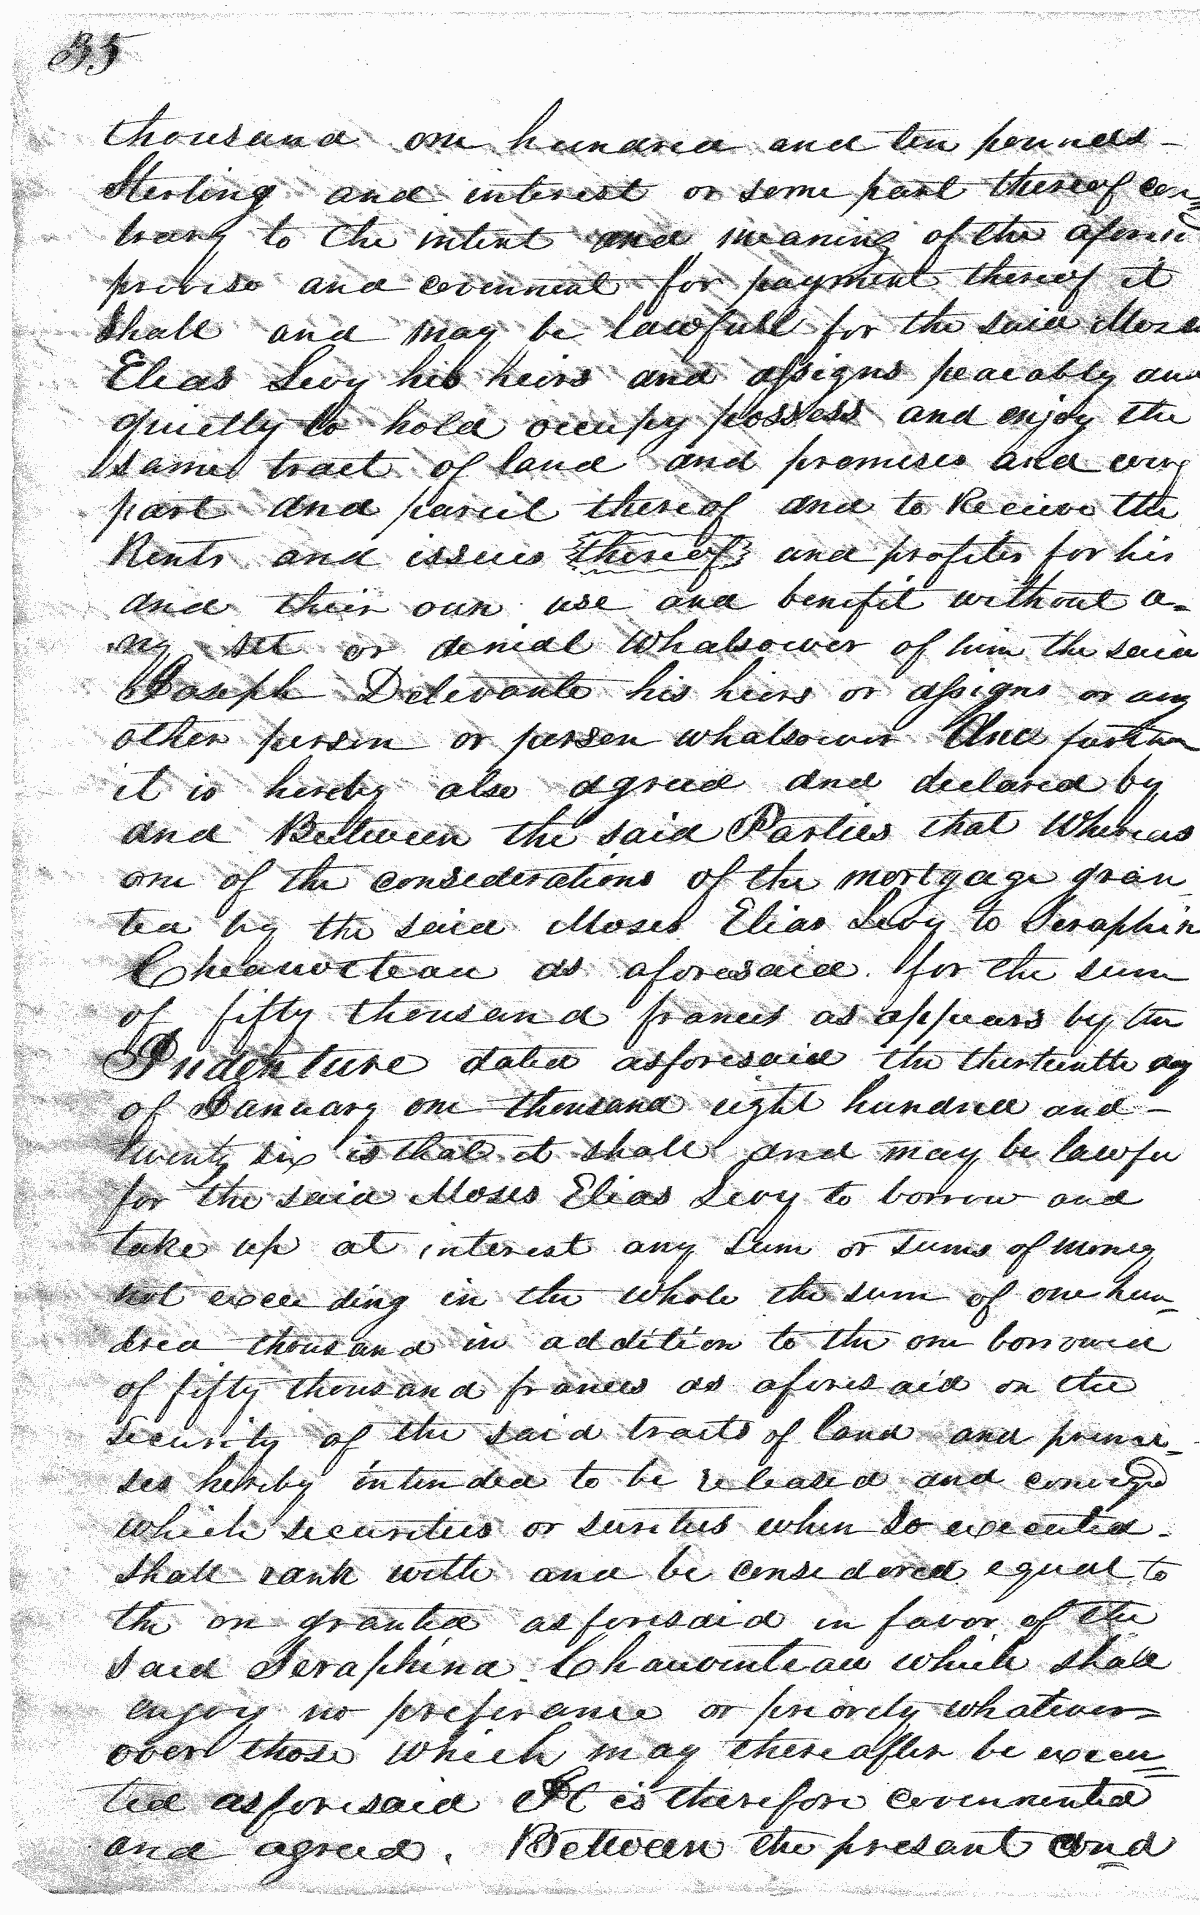 35
thousand one hundred and ten pounds -
Sterling and interest or some part thereof con=
trary to the intent and meaning of the aforesd
proviso and covennent for payment thereof it
shall and may be lawfull for the said Moses
Elias Levy his heirs and assigns peacably and
quietly to hold occupy possess and enjoy the
same tract of land and promises and every
part and parcil thereof and to Recieve the
Rents and issues thereof and profites for his
and their own use and benifit without a=
ny set or denial whatsoever of him the said
Joseph Delevante his heirs or assigns or any
other person or person whatsoever And further
it is hereby also agreed and declared by
and Between the said Parties that Whereas
one of the considerations of the mortgage gran-
ted by the said Moses Elias Levy to Seraphin
Cheauveteau as aforesaid for the sum
of fifty thousand francs as appears by the
Indenture dated asforesaid the thirteenth day
of January one thousand eight hundred and -
twenty six is that it shall and may be lawfu
for the said Moses Elias Levy to borrow and
take up at interest any sum or sums of money
not exceeding in the whole the sum of one hun=
dred thousand in addition to the one borrowed
of fifty thousand francs as aforesaid on the
security of the said tracts of land and premi=
ses hereby intended to be released and conveyd
which securities or surities when so executed -
shall rank with and be considered equal to
the on granted asforesaid in favor of the
said Seraphina Chauventeau which shall
enjoy no preferance or priority whatever=
over those which may thereafter be execu=
ted asforesaid It is therefore covennented
and agreed. Between the presant and